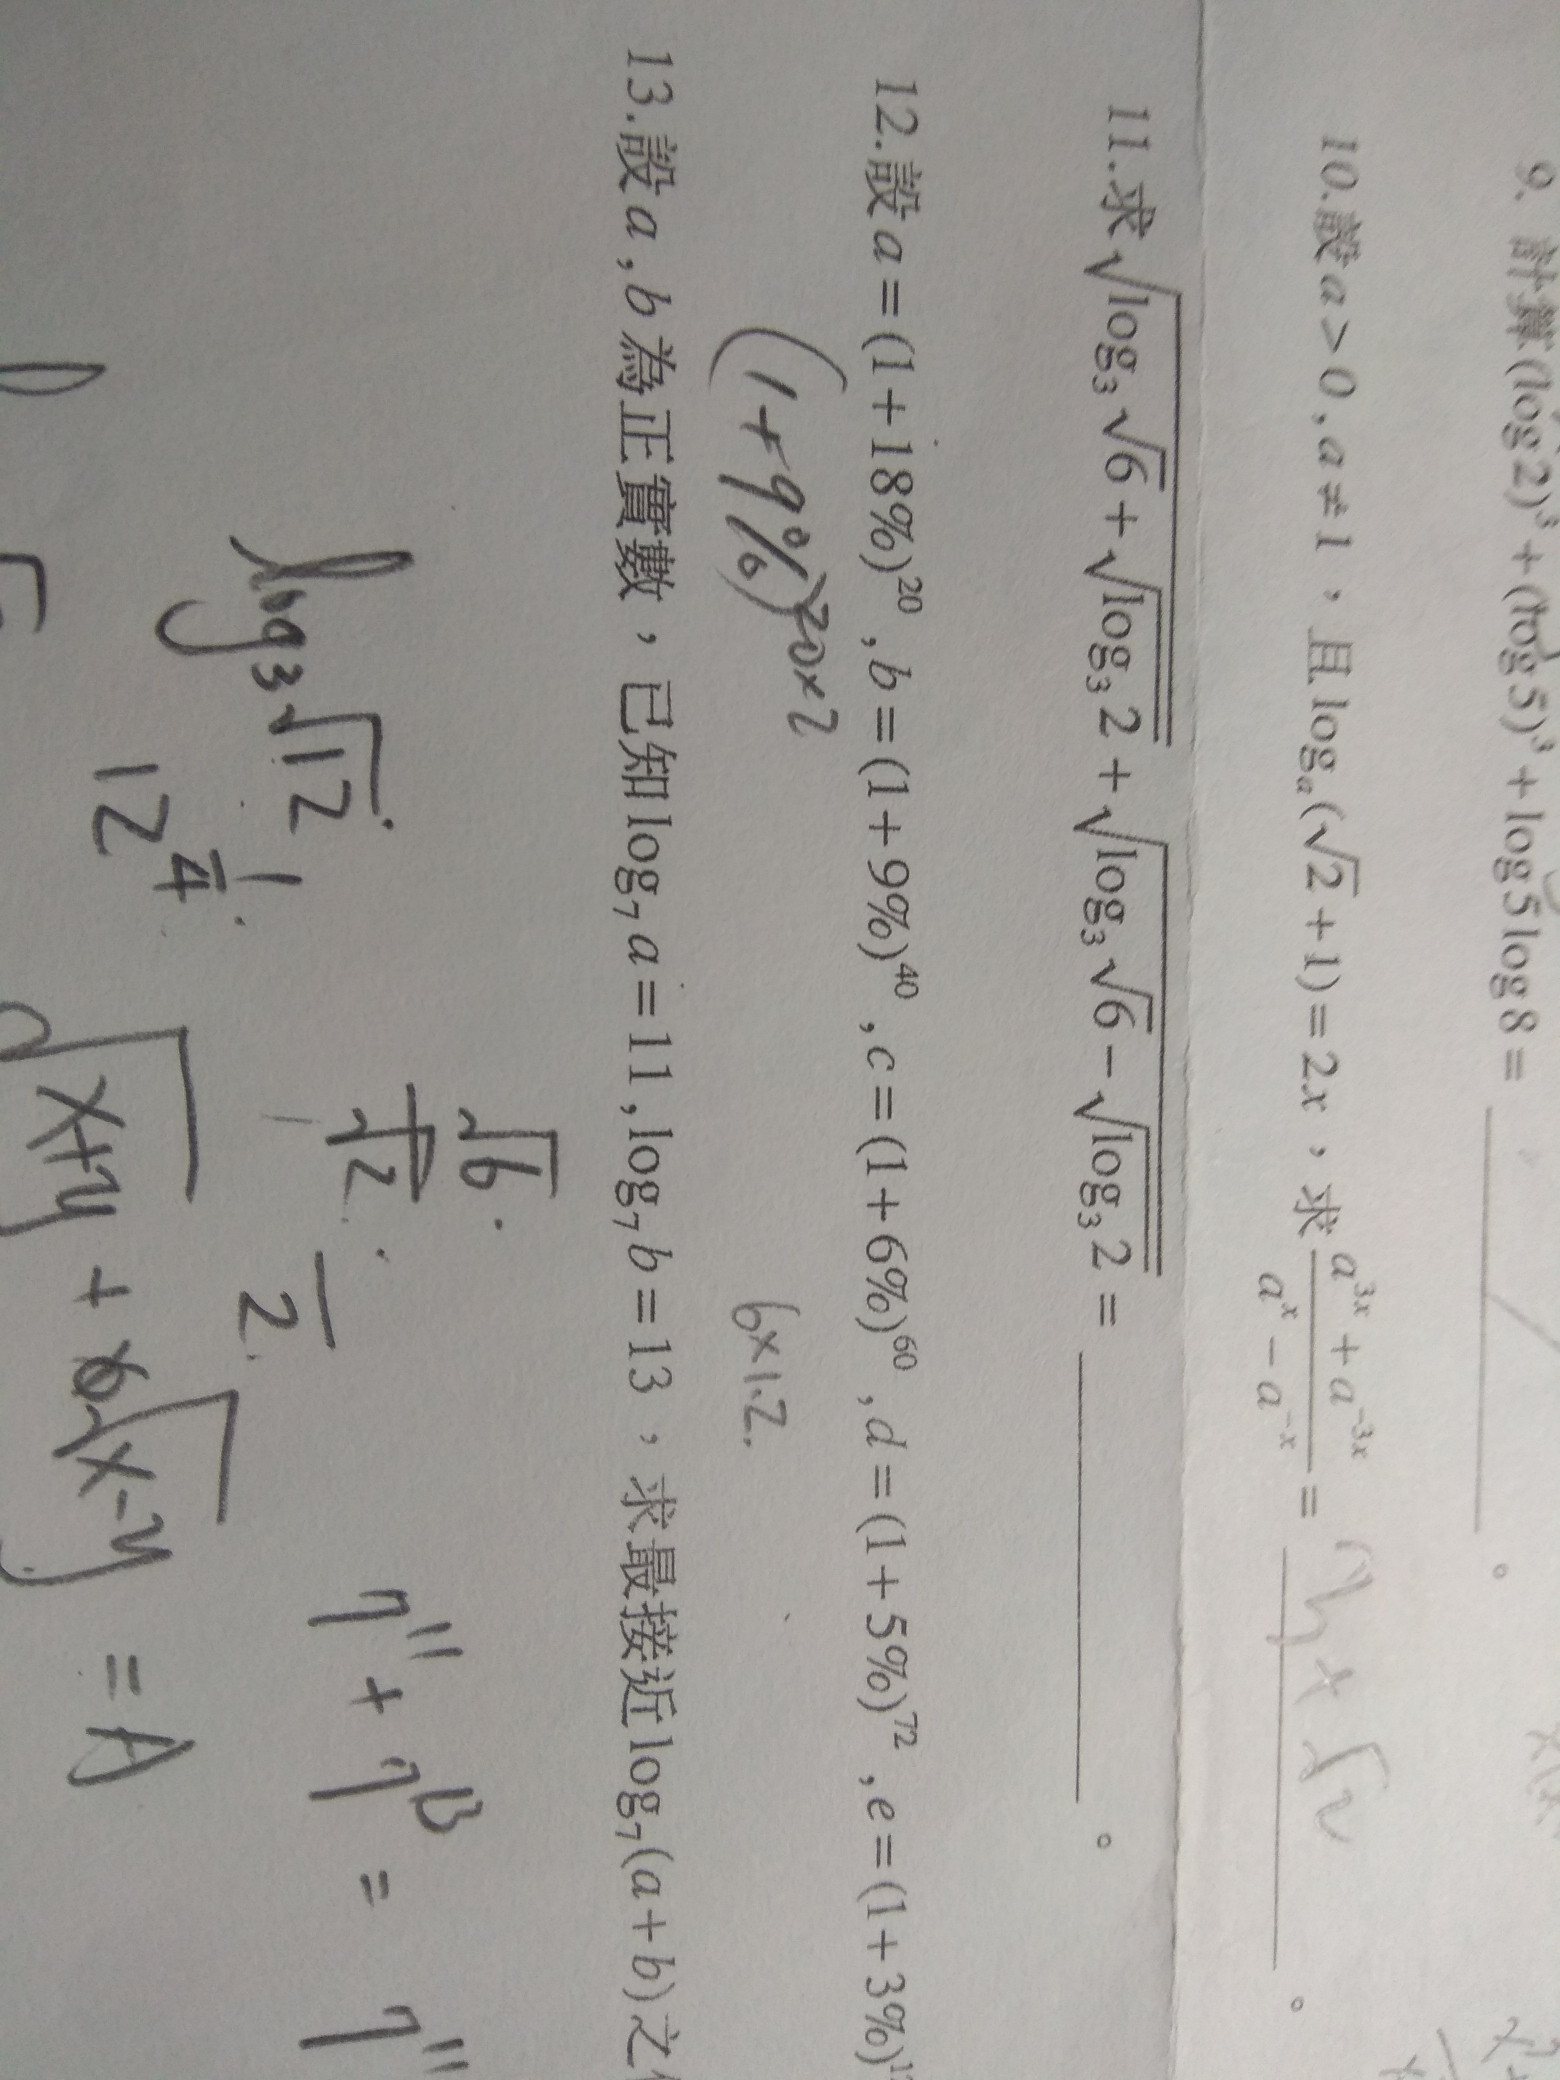 9. 計算(log 2)³+(log 5)³+log 5 log 8=
10.設a>0,a≠1，且logₐ(√2+1)=2x，求(a³ˣ+a⁻³ˣ)/(aˣ-a⁻ˣ)=
11.求√(log₃√6+√(log₃2))+√(log₃√6-√(log₃2))= 。
12.設a=(1+18%)²⁰,b=(1+9%)⁴⁰,c=(1+6%)⁶⁰,d=(1+5%)⁷²,e=(1+3%)
(1+9%)²⁰ˣ²
6×1.2.
13.設a,b為正實數，已知log₇a=11,log₇b=13，求最接近log₇(a+b)之
log₃√12
12^(1/4)
√6/√2
2
7¹¹+7¹³=7¹¹
√(x+y)+√(x-y)=A